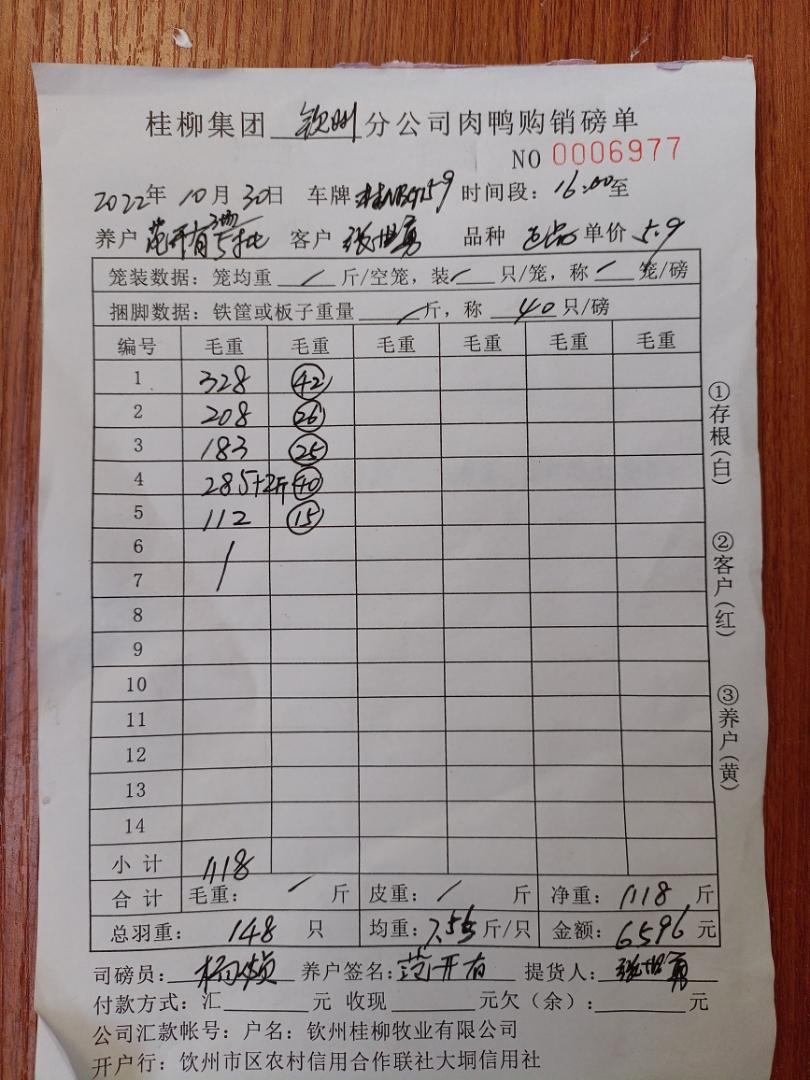 桂柳集团 钦州 分公司肉鸭购销磅单
NO 0006977
2022年 10月 30日 车牌 桂N 59 时间段：16:00至
养户 范开有 客户 张世勇 品种 单价 5.9
笼装数据：笼均重 / 斤/空笼，装 / 只/笼，称 / 笼/磅
捆脚数据：铁筐或板子重量 / 斤，称 40 只/磅
编号 毛重 毛重 毛重 毛重 毛重 毛重
1 328 42
2 208 26
3 183 25
4 285+2斤 40
5 112 15
6 /
7
8
9
10
11
12
13
14
小计 1118
合计 毛重： / 斤 皮重： / 斤 净重：1118 斤
总羽重： 148 只 均重：7.55斤/只 金额：6596元
司磅员： 养户签名：范开有 提货人：张世勇
付款方式：汇 元 收现 元欠（余）： 元
公司汇款帐号：户名：钦州桂柳牧业有限公司
开户行：钦州市区农村信用合作联社大垌信用社
①存根(白)
②客户(红)
③养户(黄)